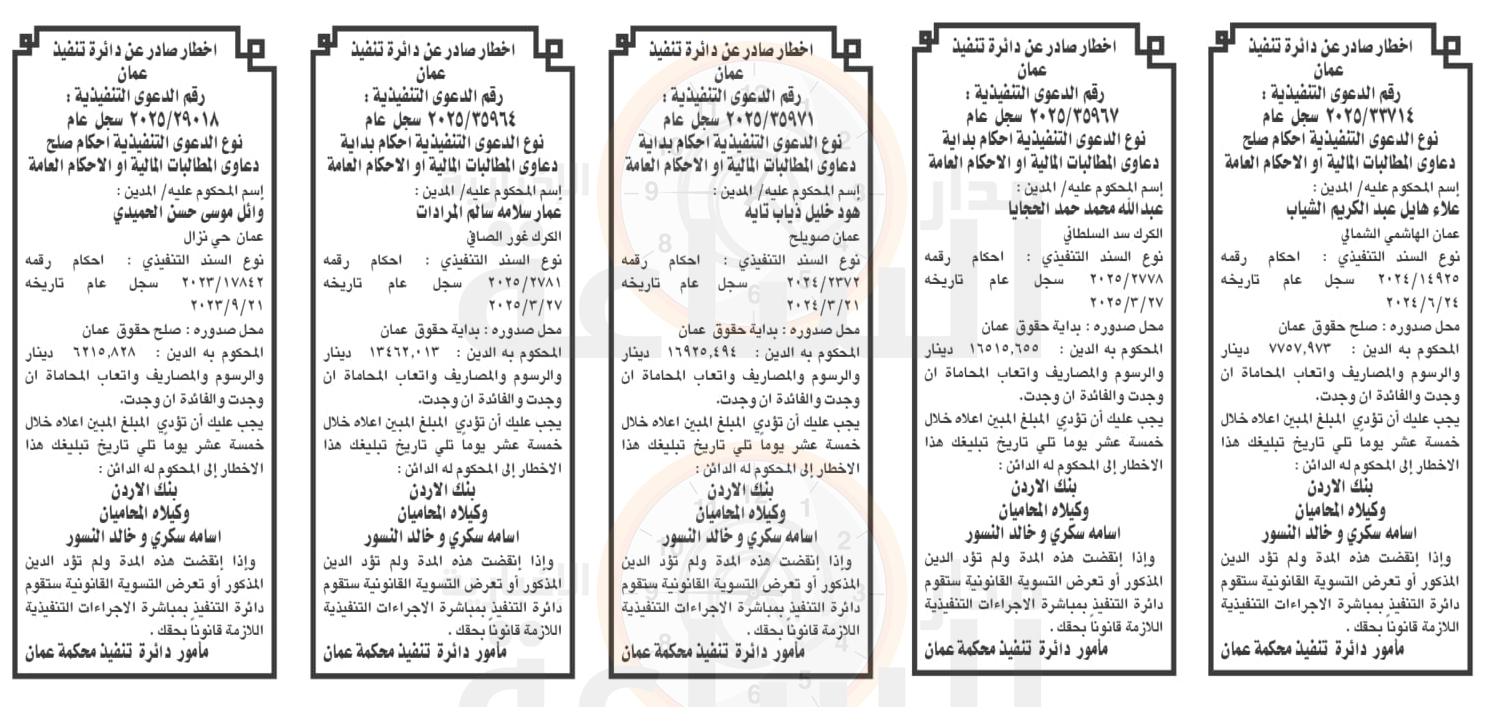 اخطار صادر عن دائرة تنفيذ
عمان
رقم الدعوى التنفيذية :
٢٠٢٥/٣٣٧١٤ سجل عام
نوع الدعوى التنفيذية احكام صلح
دعاوى المطالبات المالية او الاحكام العامة
إسم المحكوم عليه/ المدين :
علاء هايل عبد الكريم الشياب
عمان الهاشمي الشمالي
نوع السند التنفيذي : احكام رقمه
٢٠٢٤/١٤٩٢٥ سجل عام تاريخه
٢٠٢٤/٦/٢٤
محل صدوره : صلح حقوق عمان
المحكوم به الدين : ٧٧٥٧,٩٧٣ دينار
والرسوم والمصاريف واتعاب المحاماة ان
وجدت والفائدة ان وجدت.
يجب عليك أن تؤدي المبلغ المبين اعلاه خلال
خمسة عشر يوماً تلي تاريخ تبليغك هذا
الاخطار إلى المحكوم له الدائن :
بنك الاردن
وكيلاه المحاميان
اسامه سكري و خالد النسور
وإذا إنقضت هذه المدة ولم تؤد الدين
المذكور أو تعرض التسوية القانونية ستقوم
دائرة التنفيذ بمباشرة الاجراءات التنفيذية
اللازمة قانوناً بحقك .
مأمور دائرة تنفيذ محكمة عمان
اخطار صادر عن دائرة تنفيذ
عمان
رقم الدعوى التنفيذية :
٢٠٢٥/٣٥٩٦٧ سجل عام
نوع الدعوى التنفيذية احكام بداية
دعاوى المطالبات المالية او الاحكام العامة
إسم المحكوم عليه/ المدين :
عبدالله محمد حمد الحجايا
الكرك سد السلطاني
نوع السند التنفيذي : احكام رقمه
٢٠٢٥/٢٧٧٨ سجل عام تاريخه
٢٠٢٥/٣/٢٧
محل صدوره : بداية حقوق عمان
المحكوم به الدين : ١٦٥١٥,٦٥٥ دينار
والرسوم والمصاريف واتعاب المحاماة ان
وجدت والفائدة ان وجدت.
يجب عليك أن تؤدي المبلغ المبين اعلاه خلال
خمسة عشر يوما تلي تاريخ تبليغك هذا
الاخطار إلى المحكوم له الدائن :
بنك الاردن
وكيلاه المحاميان
اسامه سكري و خالد النسور
وإذا إنقضت هذه المدة ولم تؤد الدين
المذكور أو تعرض التسوية القانونية ستقوم
دائرة التنفيذ بمباشرة الاجراءات التنفيذية
اللازمة قانوناً بحقك .
مأمور دائرة تنفيذ محكمة عمان
اخطار صادر عن دائرة تنفيذ
عمان
رقم الدعوى التنفيذية :
٢٠٢٥/٣٥٩٧١ سجل عام
نوع الدعوى التنفيذية احكام بداية
دعاوى المطالبات المالية او الاحكام العامة
إسم المحكوم عليه/ المدين :
هود خليل ذياب تايه
عمان صويلح
نوع السند التنفيذي : احكام رقمه
٢٠٢٤/٢٣٧٢ سجل عام تاريخه
٢٠٢٤/٣/٢١
محل صدوره : بداية حقوق عمان
المحكوم به الدين : ١٦٩٢٥,٤٩٤ دينار
والرسوم والمصاريف واتعاب المحاماة ان
وجدت والفائدة ان وجدت.
يجب عليك أن تؤدي المبلغ المبين اعلاه خلال
خمسة عشر يوماً تلي تاريخ تبليغك هذا
الاخطار إلى المحكوم له الدائن :
بنك الاردن
وكيلاه المحاميان
اسامه سكري و خالد النسور
وإذا إنقضت هذه المدة ولم تؤد الدين
المذكور أو تعرض التسوية القانونية ستقوم
دائرة التنفيذ بمباشرة الاجراءات التنفيذية
اللازمة قانوناً بحقك .
مأمور دائرة تنفيذ محكمة عمان
اخطار صادر عن دائرة تنفيذ
عمان
رقم الدعوى التنفيذية :
٢٠٢٥/٣٥٩٦٤ سجل عام
نوع الدعوى التنفيذية احكام بداية
دعاوى المطالبات المالية او الاحكام العامة
إسم المحكوم عليه/ المدين :
عمار سلامه سالم المرادات
الكرك غور الصافي
نوع السند التنفيذي : احكام رقمه
٢٠٢٥/٢٧٨١ سجل عام تاريخه
٢٠٢٥/٣/٢٧
محل صدوره : بداية حقوق عمان
المحكوم به الدين : ١٣٤٦٢,٠١٣ دينار
والرسوم والمصاريف واتعاب المحاماة ان
وجدت والفائدة ان وجدت.
يجب عليك أن تؤدي المبلغ المبين اعلاه خلال
خمسة عشر يوماً تلي تاريخ تبليغك هذا
الاخطار إلى المحكوم له الدائن :
بنك الاردن
وكيلاه المحاميان
اسامه سكري و خالد النسور
وإذا إنقضت هذه المدة ولم تؤد الدين
المذكور أو تعرض التسوية القانونية ستقوم
دائرة التنفيذ بمباشرة الاجراءات التنفيذية
اللازمة قانوناً بحقك .
مأمور دائرة تنفيذ محكمة عمان
اخطار صادر عن دائرة تنفيذ
عمان
رقم الدعوى التنفيذية :
٢٠٢٥/٢٩٠١٨ سجل عام
نوع الدعوى التنفيذية احكام صلح
دعاوى المطالبات المالية او الاحكام العامة
إسم المحكوم عليه/ المدين :
وائل موسى حسن الحميدي
عمان حي نزال
نوع السند التنفيذي : احكام رقمه
٢٠٢٣/١٧٨٤٢ سجل عام تاريخه
٢٠٢٣/٩/٢١
محل صدوره : صلح حقوق عمان
المحكوم به الدين : ٦٢١٥,٨٢٨ دينار
والرسوم والمصاريف واتعاب المحاماة ان
وجدت والفائدة ان وجدت.
يجب عليك أن تؤدي المبلغ المبين اعلاه خلال
خمسة عشر يوماً تلي تاريخ تبليغك هذا
الاخطار إلى المحكوم له الدائن :
بنك الاردن
وكيلاه المحاميان
اسامه سكري و خالد النسور
وإذا إنقضت هذه المدة ولم تؤد الدين
المذكور أو تعرض التسوية القانونية ستقوم
دائرة التنفيذ بمباشرة الاجراءات التنفيذية
اللازمة قانوناً بحقك .
مأمور دائرة تنفيذ محكمة عمان